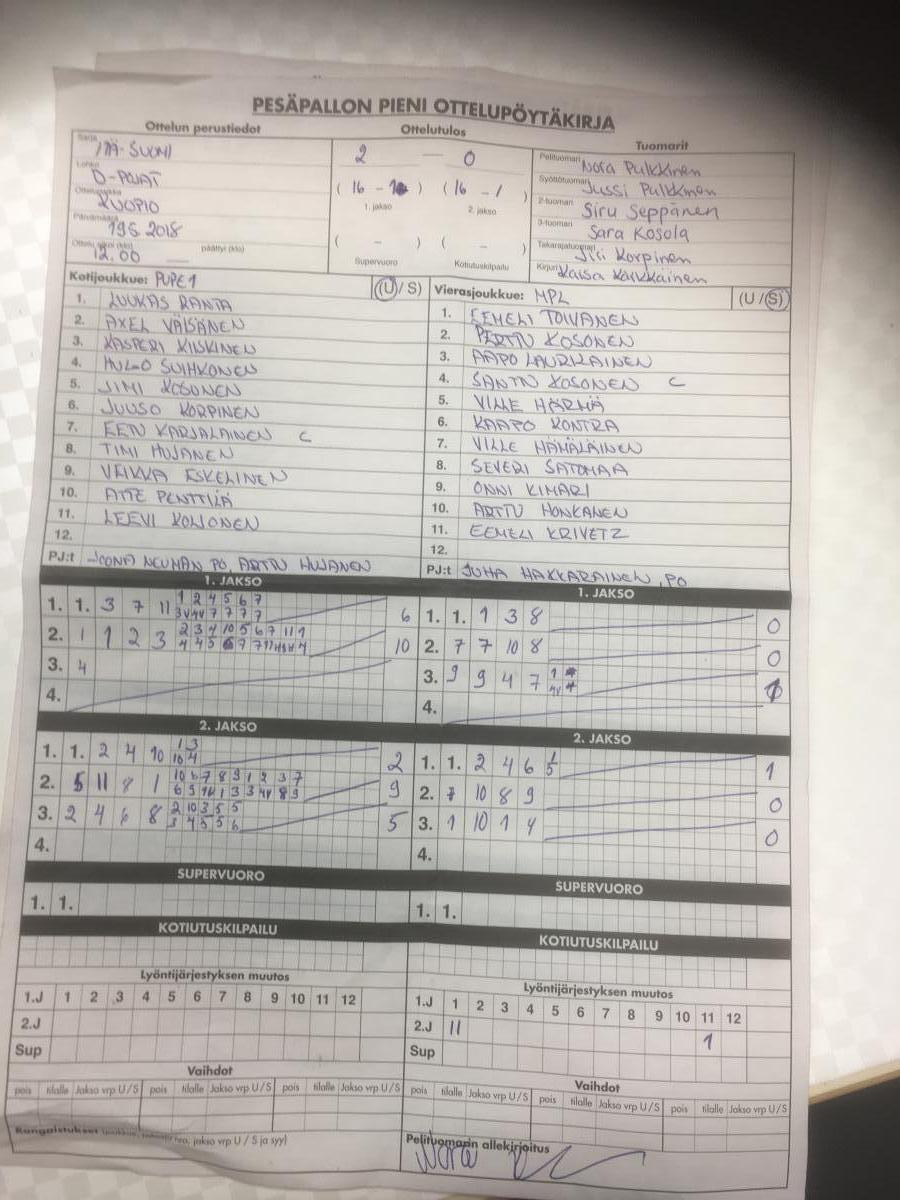 PESÄPALLON PIENI OTTELUPÖYTÄKIRJA
Ottelun perustiedot
Ottelutulos
Tuomarit
Sarja ITÄ-SUOMI
Lohko D-POJAT
Ottelupaikka KUOPIO
Päivämäärä 19.5 2018
Ottelu alkoi (klo) 12.00 päättyi (klo)
2 — 0
( 16 - ) ( 16 - 1 )
1. jakso 2. jakso
( - ) ( - )
Supervuoro Kotiutuskilpailu
Pelituomari Nora Pulkkinen
Syöttötuomari Jussi Pulkkinen
2-tuomari Siru Seppänen
3-tuomari Sara Kosola
Takarajatuomari Jiri Korpinen
Kirjuri Kaisa Karkkainen
Kotijoukkue: PUPE 1 (U/S)
1. LUUKAS RANTA
2. AXEL VÄISÄNEN
3. KASPERI KIISKINEN
4. HUGO SUIHKONEN
5. JIMI KOSONEN
6. JUUSO KORPINEN
7. EETU KARJALAINEN C
8. TIMI HUJANEN
9. VEIKKA ESKELINEN
10. ATTE PENTTILÄ
11. LEEVI KOLJONEN
12.
PJ:t JOONA NEUMAN PO, ARTTU HUJANEN
Vierasjoukkue: MPL (U/S)
1. EEMELI TOIVANEN
2. PERTTU KOSONEN
3. AAPO LAURIKAINEN
4. SANTTU KOSONEN C
5. VILLE HÄRMÄ
6. KAAPO KONTRA
7. VILLE HÄMÄLÄINEN
8. SEVERI SATOMAA
9. ONNI KIMARI
10. ARTTU HONKANEN
11. EEMELI KRIVETZ
12.
PJ:t JUHA HAKKARAINEN, PO
1. JAKSO
1. 1. 3 7 11 1 2 4 5 6 7 6
2. 1 1 2 3 2 3 4 10 5 6 7 11 1 10
3. 4
4.
1. JAKSO
1. 1. 1 3 8 0
2. 7 7 10 8 0
3. 9 9 4 7
4.
2. JAKSO
1. 1. 2 4 10 1 3 2
10 4
2. 5 11 8 1 10 6 7 8 9 1 2 3 7 9
3. 2 4 6 8 2 10 3 5 5 5
3 4 5 5 6
4.
2. JAKSO
1. 1. 2 4 6 1 5 1
2. 7 10 8 9 0
3. 1 10 1 4 0
4.
SUPERVUORO
1. 1.
SUPERVUORO
1. 1.
KOTIUTUSKILPAILU
KOTIUTUSKILPAILU
Lyöntijärjestyksen muutos
1.J 1 2 3 4 5 6 7 8 9 10 11 12
2.J
Sup
Lyöntijärjestyksen muutos
1.J 1 2 3 4 5 6 7 8 9 10 11 12
2.J 11 1
Sup
Vaihdot
pois tilalle Jakso vrp U/S pois tilalle Jakso vrp U/S pois tilalle Jakso vrp U/S
Vaihdot
pois tilalle Jakso vrp U/S pois tilalle Jakso vrp U/S pois tilalle Jakso vrp U/S
Rangaistukset jakso vrp U / S ja syy)
Pelituomarin allekirjoitus
Nora